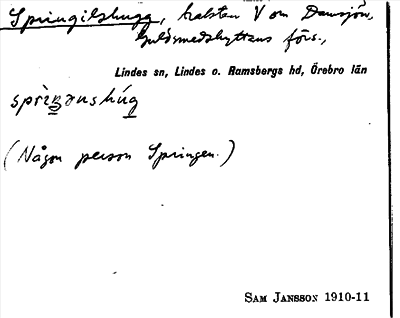 Springilshugg, trakten V om Dansjön,
Guldsmedshyttans förs.,
Lindes sn, Lindes o. Ramsbergs hd, Örebro län
(Någon person Springen.)
SAM JANSSON 1910-11